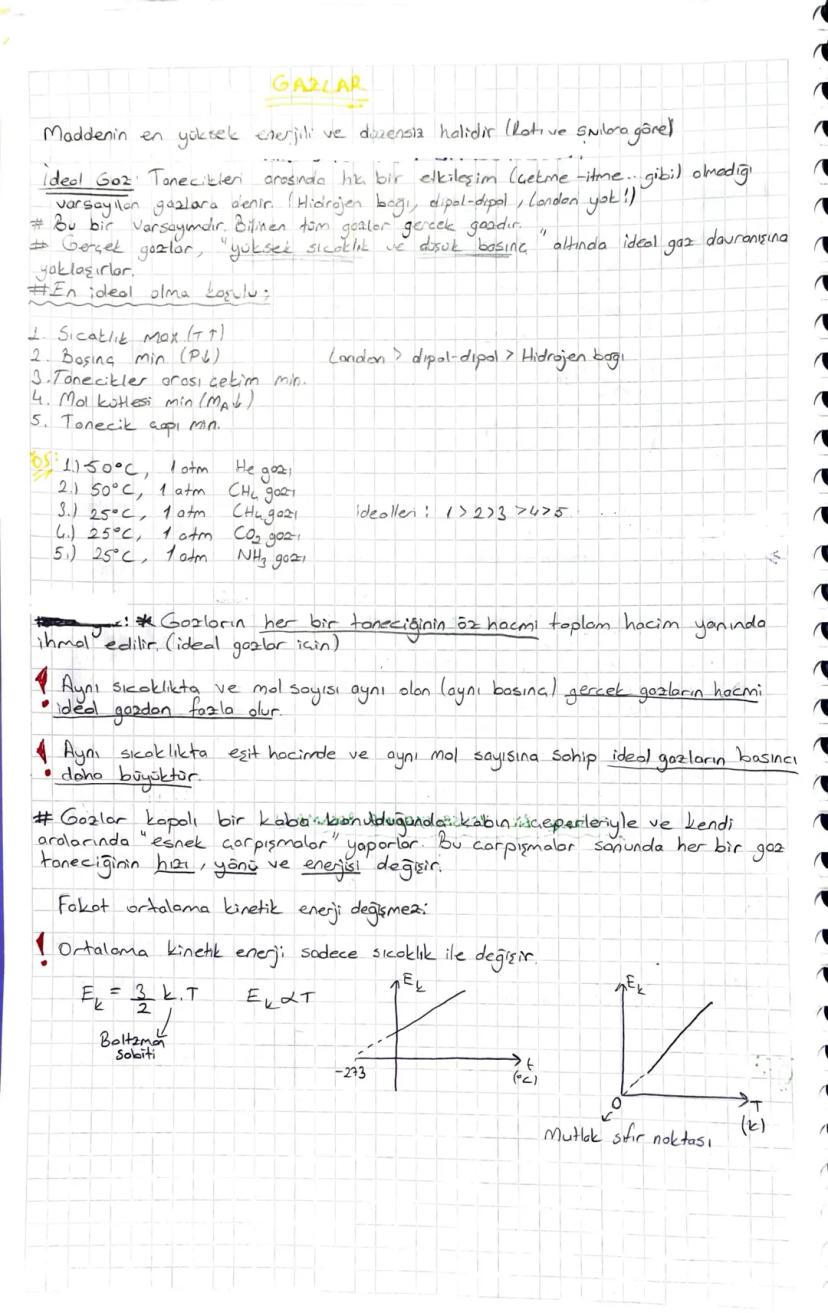 GAZLAR
Maddenin en yüksek enerjili ve düzensiz halidir (Katı ve sıvılara göre)
İdeal Gaz: Tanecikleri arasında hiç bir etkileşim (çekme-itme.. gibi) olmadığı
varsayılan gazlara denir. (Hidrojen bağı, dipol-dipol, London yok!)
# Bu bir varsayımdır. Bilinen tüm gazlar gerçek gazdır.
# Gerçek gazlar, "yüksek sıcaklık ve düşük basınç" altında ideal gaz davranışına
yaklaşırlar.
# En ideal olma koşulu:
1. Sıcaklık max (T↑)
2. Basınç min (P↓) London > dipol-dipol > Hidrojen bağı
3. Tanecikler arası çekim min.
4. Mol kütlesi min (MA↓)
5. Tanecik çapı min.
ÖS: 1.) 50°C, 1 atm He gazı
2.) 50°C, 1 atm CH4 gazı
3.) 25°C, 1 atm CH4 gazı idealleri: 1>2>3>4>5
4.) 25°C, 1 atm CO2 gazı
5.) 25°C, 1 atm NH3 gazı
: * Gazların her bir taneciğinin öz hacmi toplam hacim yanında
ihmal edilir. (ideal gazlar için)
! Aynı sıcaklıkta ve mol sayısı aynı olan (aynı basınç) gerçek gazların hacmi
ideal gazdan fazla olur.
! Aynı sıcaklıkta eşit hacimde ve aynı mol sayısına sahip ideal gazların basıncı
daha büyüktür.
# Gazlar kapalı bir kaba konulduğunda kabın çeperleriyle ve kendi
aralarında "esnek çarpışmalar" yaparlar. Bu çarpışmalar sonunda her bir gaz
taneciğinin hızı, yönü ve enerjisi değişir.
Fakat ortalama kinetik enerji değişmez:
! Ortalama kinetik enerji sadece sıcaklık ile değişir.
Ek = 3/2 k.T Ek α T
Boltzman
sabiti
Ek
-273
t
(°C)
Ek
0
T
(K)
Mutlak sıfır noktası